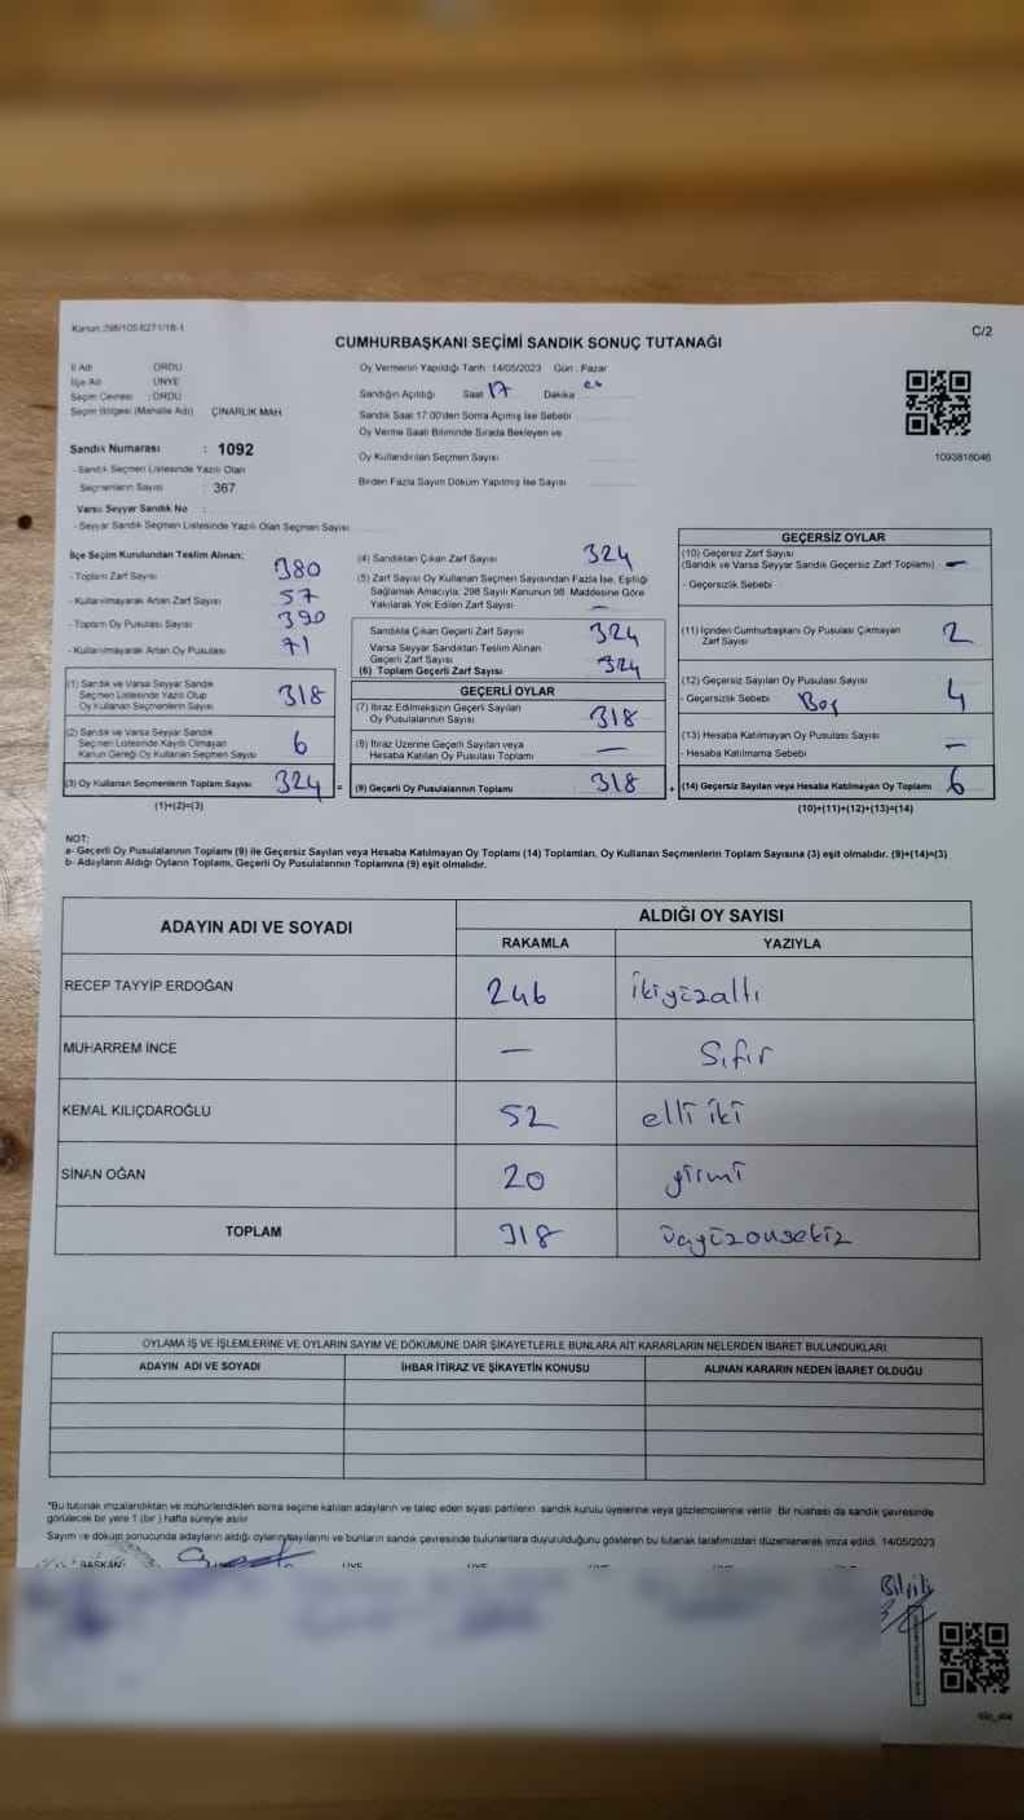 Kanun:298/105-6271/18-1
C/2
CUMHURBAŞKANI SEÇİMİ SANDIK SONUÇ TUTANAĞI
İl Adı : ORDU
İlçe Adı : ÜNYE
Seçim Çevresi : ORDU
Seçim Bölgesi (Mahalle Adı) : ÇINARLIK MAH
Sandık Numarası : 1092
- Sandık Seçmen Listesinde Yazılı Olan
Seçmenlerin Sayısı : 367
Varsa Seyyar Sandık No :
- Seyyar Sandık Seçmen Listesinde Yazılı Olan Seçmen Sayısı
Oy Vermenin Yapıldığı Tarih :14/05/2023 Gün : Pazar
Sandığın Açıldığı Saat 17 Dakika
Sandık Saat 17:00'den Sonra Açılmış İse Sebebi
Oy Verme Saati Bitiminde Sırada Bekleyen ve
Oy Kullandırılan Seçmen Sayısı
Birden Fazla Sayım Döküm Yapılmış İse Sayısı
1093818046
İlçe Seçim Kurulundan Teslim Alınan:
- Toplam Zarf Sayısı 380
- Kullanılmayarak Artan Zarf Sayısı 57
- Toplam Oy Pusulası Sayısı 390
- Kullanılmayarak Artan Oy Pusulası 71
(1) Sandık ve Varsa Seyyar Sandık
Seçmen Listesinde Yazılı Olup
Oy Kullanan Seçmenlerin Sayısı 318
(2) Sandık ve Varsa Seyyar Sandık
Seçmen Listesinde Kayıtlı Olmayan
Kanun Gereği Oy Kullanan Seçmen Sayısı 6
(3) Oy Kullanan Seçmenlerin Toplam Sayısı 324 =
(1)+(2)=(3)
(4) Sandıktan Çıkan Zarf Sayısı 324
(5) Zarf Sayısı Oy Kullanan Seçmen Sayısından Fazla İse, Eşitliği
Sağlamak Amacıyla; 298 Sayılı Kanunun 98. Maddesine Göre
Yakılarak Yok Edilen Zarf Sayısı —
Sandıkta Çıkan Geçerli Zarf Sayısı 324
Varsa Seyyar Sandıktan Teslim Alınan
Geçerli Zarf Sayısı
(6) Toplam Geçerli Zarf Sayısı 324
GEÇERLİ OYLAR
(7) İtiraz Edilmeksizin Geçerli Sayılan
Oy Pusulalarının Sayısı 318
(8) İtiraz Üzerine Geçerli Sayılan veya
Hesaba Katılan Oy Pusulası Toplamı —
(9) Geçerli Oy Pusulalarının Toplamı 318 +
GEÇERSİZ OYLAR
(10) Geçersiz Zarf Sayısı
(Sandık ve Varsa Seyyar Sandık Geçersiz Zarf Toplamı) —
- Geçersizlik Sebebi
(11) İçinden Cumhurbaşkanı Oy Pusulası Çıkmayan
Zarf Sayısı 2
(12) Geçersiz Sayılan Oy Pusulası Sayısı 4
- Geçersizlik Sebebi Boş
(13) Hesaba Katılmayan Oy Pusulası Sayısı —
- Hesaba Katılmama Sebebi
(14) Geçersiz Sayılan veya Hesaba Katılmayan Oy Toplamı 6
(10)+(11)+(12)+(13)=(14)
NOT:
a- Geçerli Oy Pusulalarının Toplamı (9) ile Geçersiz Sayılan veya Hesaba Katılmayan Oy Toplamı (14) Toplamları, Oy Kullanan Seçmenlerin Toplam Sayısına (3) eşit olmalıdır. (9)+(14)=(3)
b- Adayların Aldığı Oyların Toplamı, Geçerli Oy Pusulalarının Toplamına (9) eşit olmalıdır.
ADAYIN ADI VE SOYADI ALDIĞI OY SAYISI
RAKAMLA YAZIYLA
RECEP TAYYİP ERDOĞAN 246 ikiyüzaltı
MUHARREM İNCE — Sıfır
KEMAL KILIÇDAROĞLU 52 elli iki
SİNAN OĞAN 20 yirmi
TOPLAM 318 üçyüzonsekiz
OYLAMA İŞ VE İŞLEMLERİNE VE OYLARIN SAYIM VE DÖKÜMÜNE DAİR ŞİKAYETLERLE BUNLARA AİT KARARLARIN NELERDEN İBARET BULUNDUKLARI
ADAYIN ADI VE SOYADI İHBAR İTİRAZ VE ŞİKAYETİN KONUSU ALINAN KARARIN NEDEN İBARET OLDUĞU
*Bu tutanak imzalandıktan ve mühürlendikten sonra seçime katılan adayların ve talep eden siyasi partilerin sandık kurulu üyelerine veya gözlemcilerine verilir. Bir nüshası da sandık çevresinde
görülecek bir yere 1 (bir) hafta süreyle asılır
Sayım ve döküm sonucunda adayların aldığı oyların sayılarını ve bunların sandık çevresinde bulunanlara duyurulduğunu gösteren bu tutanak tarafımızdan düzenlenerek imza edildi. 14/05/2023
BAŞKAN